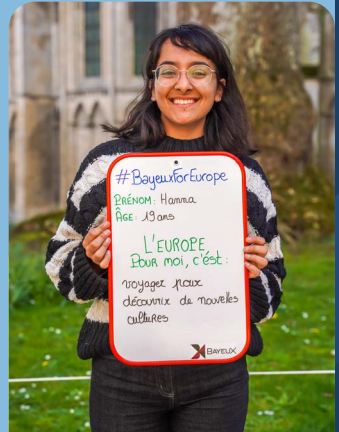 #BayeuxForEurope
PRÉNOM: Hanna
ÂGE: 19 ans
L'EUROPE,
POUR MOI, C'ÉST:
voyager pour
découvrir de nouvelles
cultures
BAYEUX